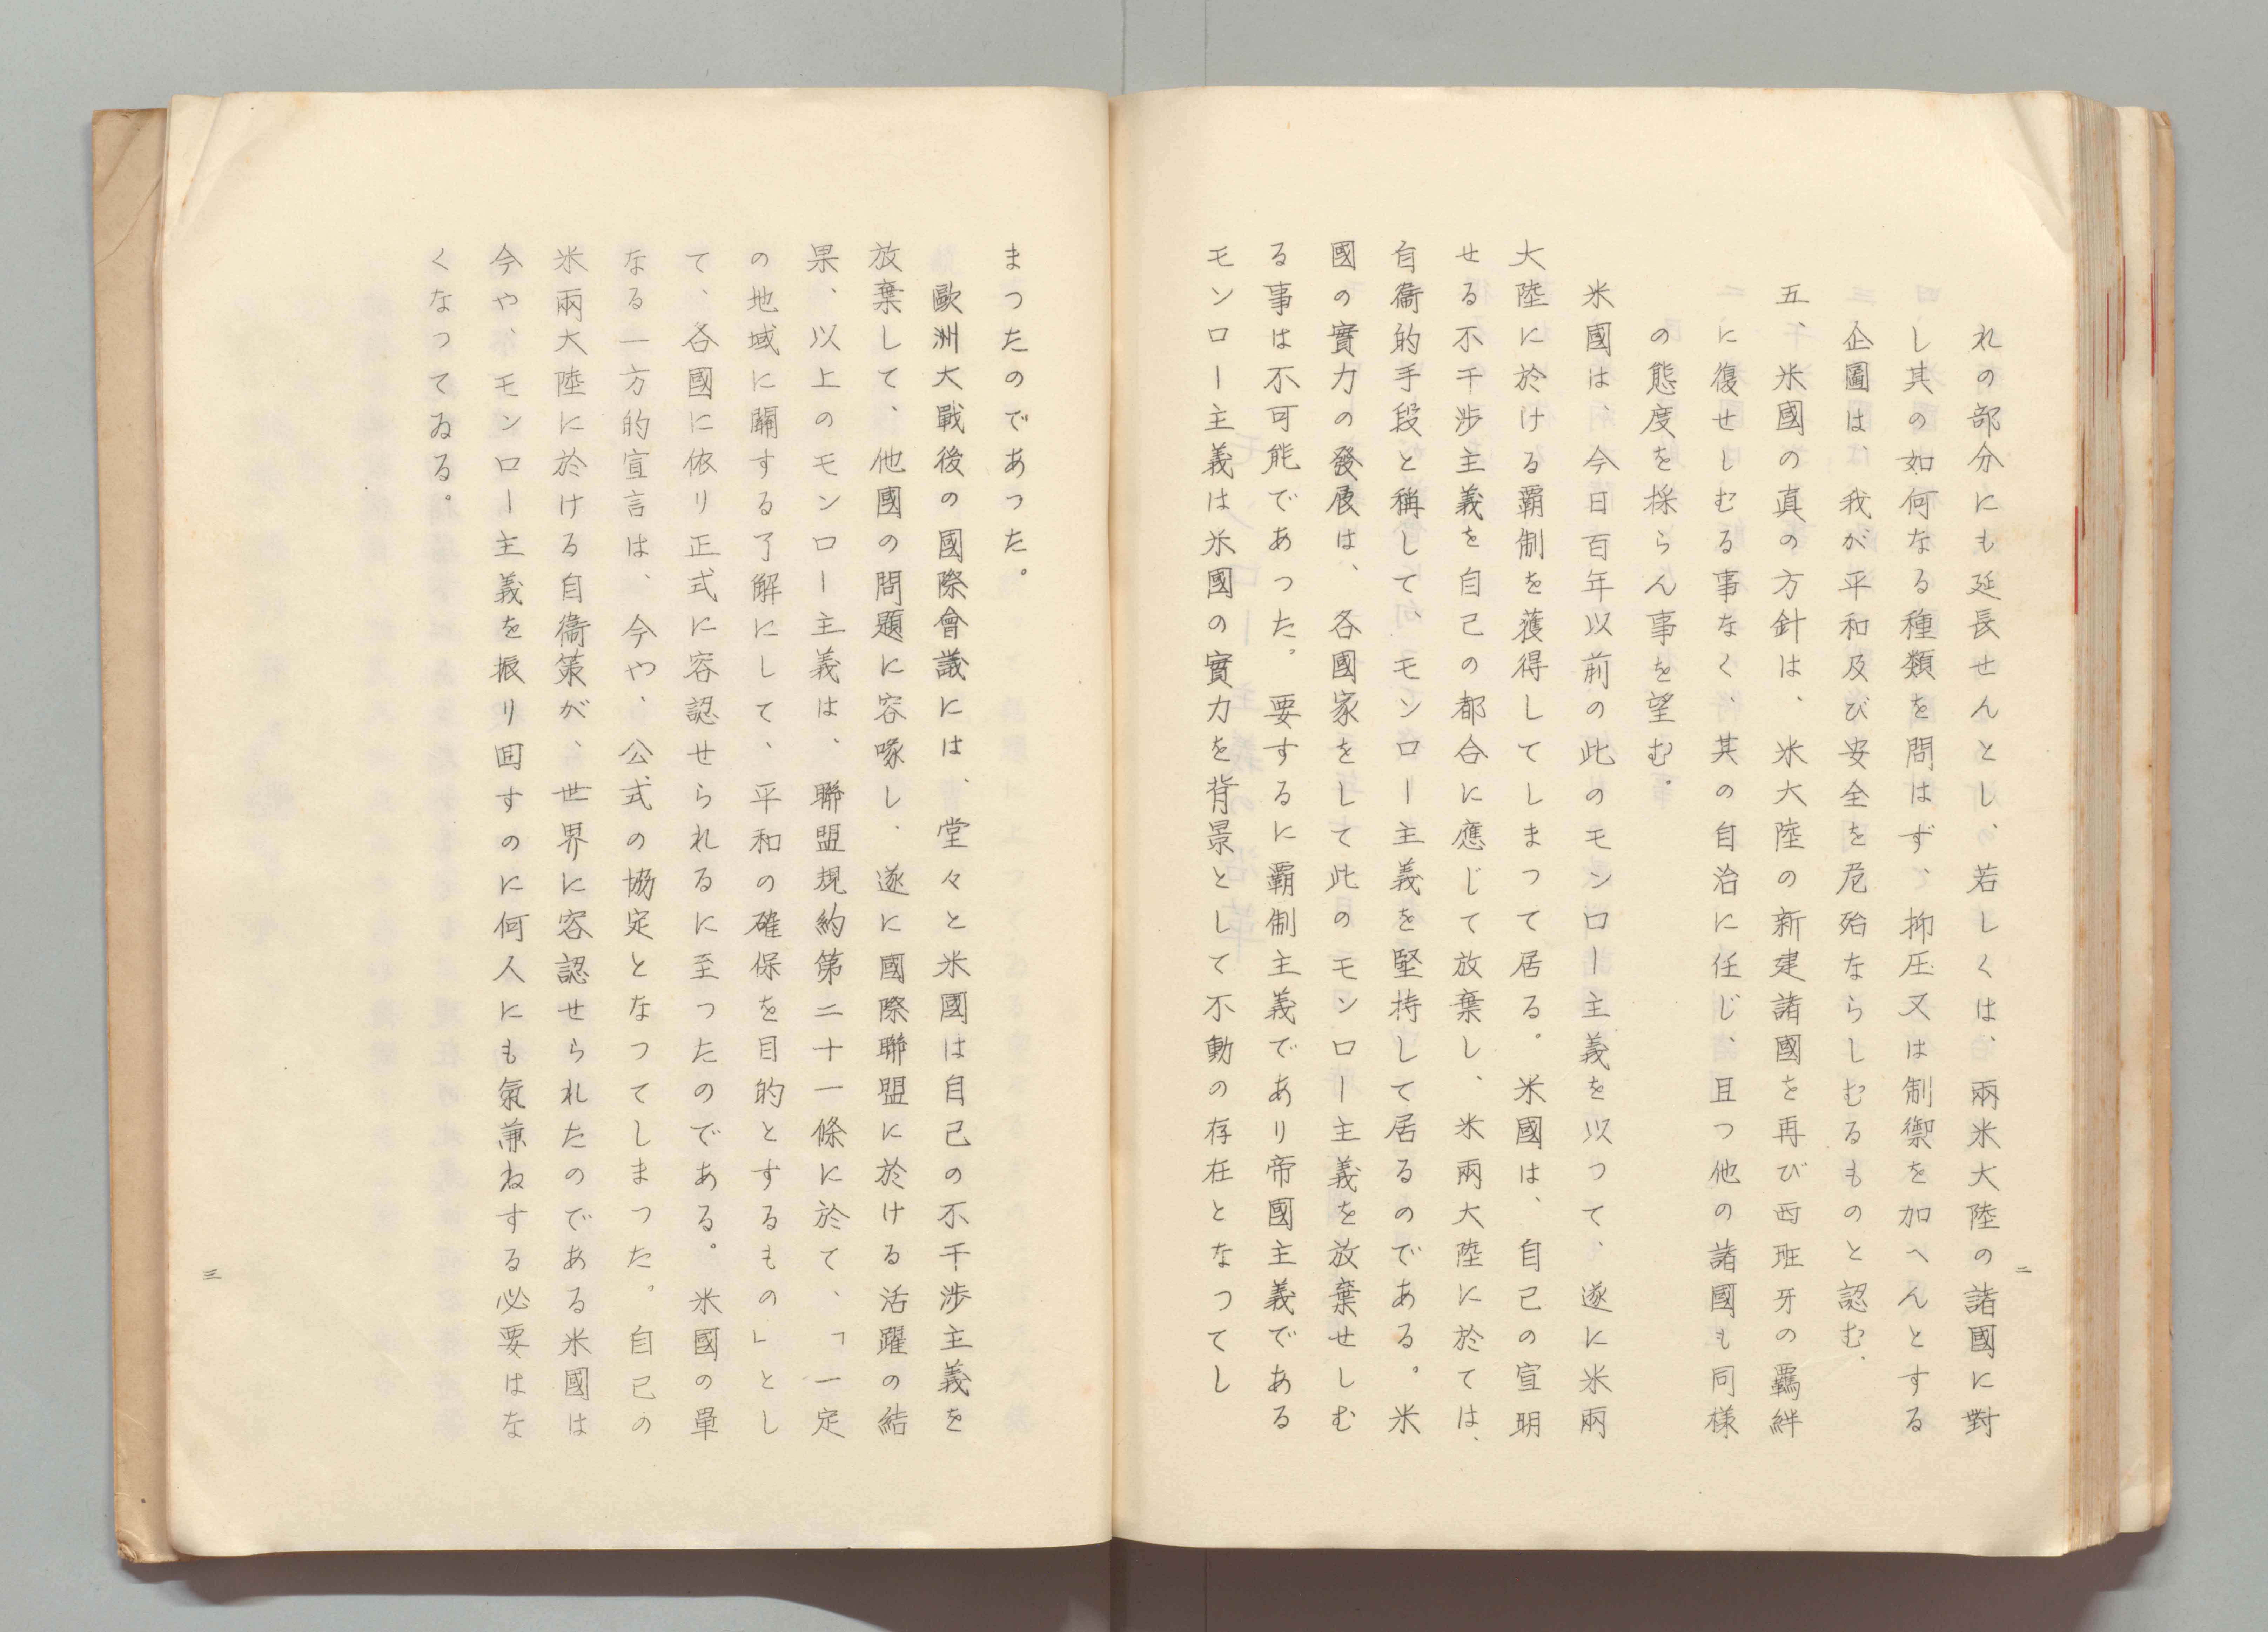 れの部分にも延長せんとし、若しくは、兩米大陸の諸國に對
し其の如何なる種類を問はず、抑圧又は制禦を加へんとする
企圖は、我が平和及び安全を危殆ならしむるものと認む。
五、米國の真の方針は、米大陸の新建諸國を再び西班牙の羈絆
に復せしむる事なく、其の自治に任じ、且つ他の諸國も同様
の態度を採らん事を望む。
米國は、今日百年以前の此のモンロー主義を以つて、遂に米兩
大陸に於ける覇制を獲得してしまつて居る。米國は、自己の宣明
せる不干渉主義を自己の都合に應じて放棄し、米兩大陸に於ては、
自衞的手段と稱して、モンロー主義を堅持して居るのである。米
國の實力の發展は、各國家をして此のモンロー主義を放棄せしむ
る事は不可能であつた。要するに覇制主義であり帝國主義である
モンロー主義は米國の實力を背景として不動の存在となつてし
二
まつたのであつた。
歐洲大戰後の國際會議には、堂々と米國は自己の不干渉主義を
放棄して、他國の問題に容喙し、遂に國際聯盟に於ける活躍の結
果、以上のモンロー主義は、聯盟規約第二十一條に於て、「一定
の地域に關する了解にして、平和の確保を目的とするもの」とし
て、各國に依り正式に容認せられるに至つたのである。米國の單
なる一方的宣言は、今や、公式の協定となつてしまつた。自己の
米兩大陸に於ける自衞策が、世界に容認せられたのである米國は
今や、モンロー主義を振り囬すのに何人にも氣兼ねする必要はな
くなつてゐる。
三